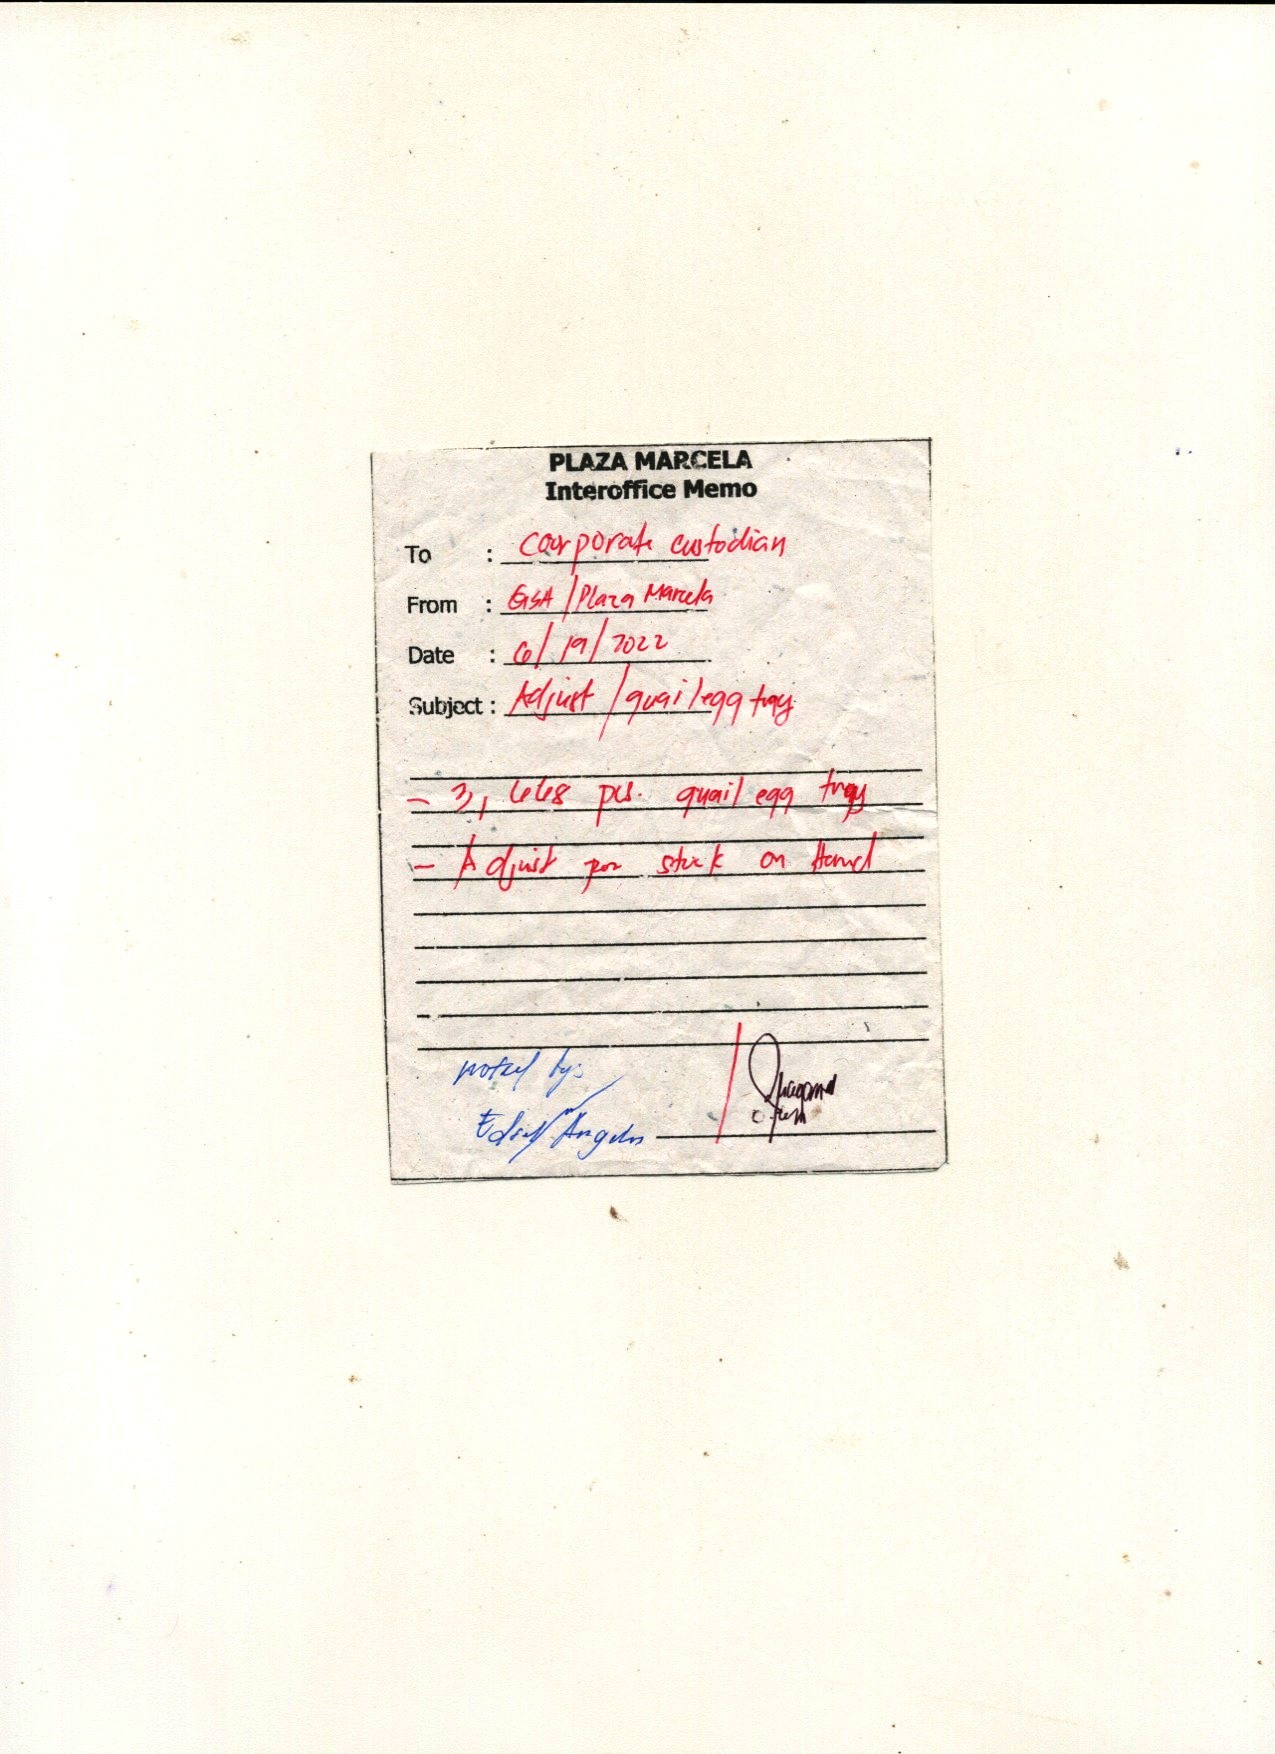 PLAZA MARCELA
Interoffice Memo
To : Corporate custodian
From : GSA / Plaza Marcela
Date : 6/19/2022
Subject : Adjust / quail egg tray
- 3, pcs. quail egg tray
- Adjust per stock on Hand
noted by:
Edsel Angelo